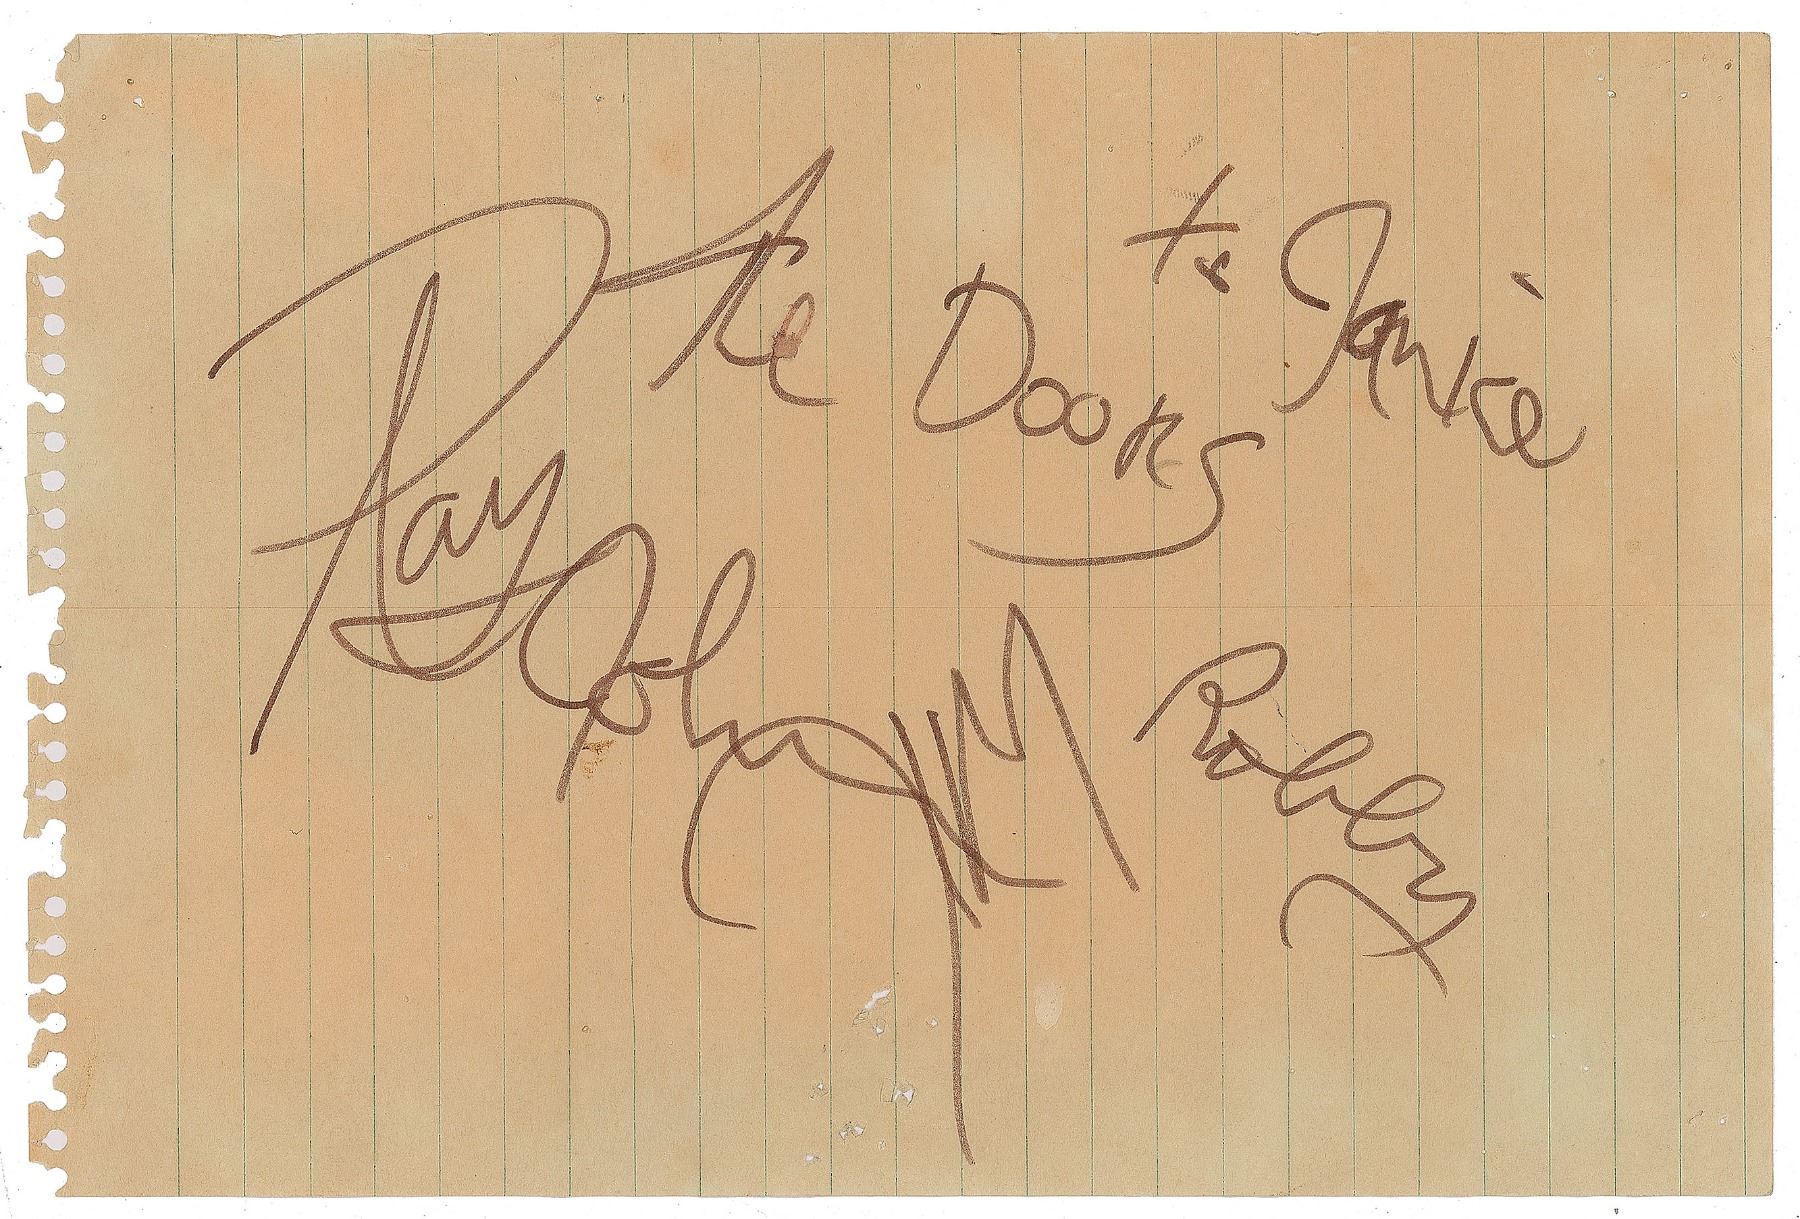 to Janice
the Doors
Ray
John
Jim
Robby